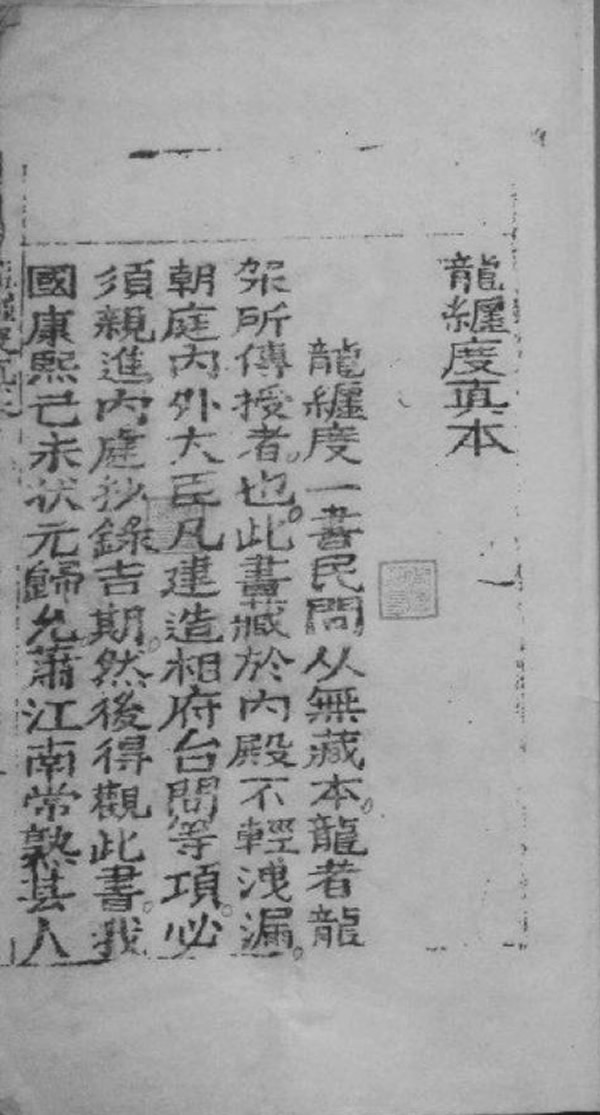 龍纏度真本
龍纏度一書民間从無藏本。龍者龍
架所傳授者。也。此書藏於內殿不輕洩漏。
朝庭內外大臣凡建造相府台閣等項。必
須親進內庭抄錄吉期。然後得觀此書。我
國康熙己未狀元歸允肅江南常熟縣人